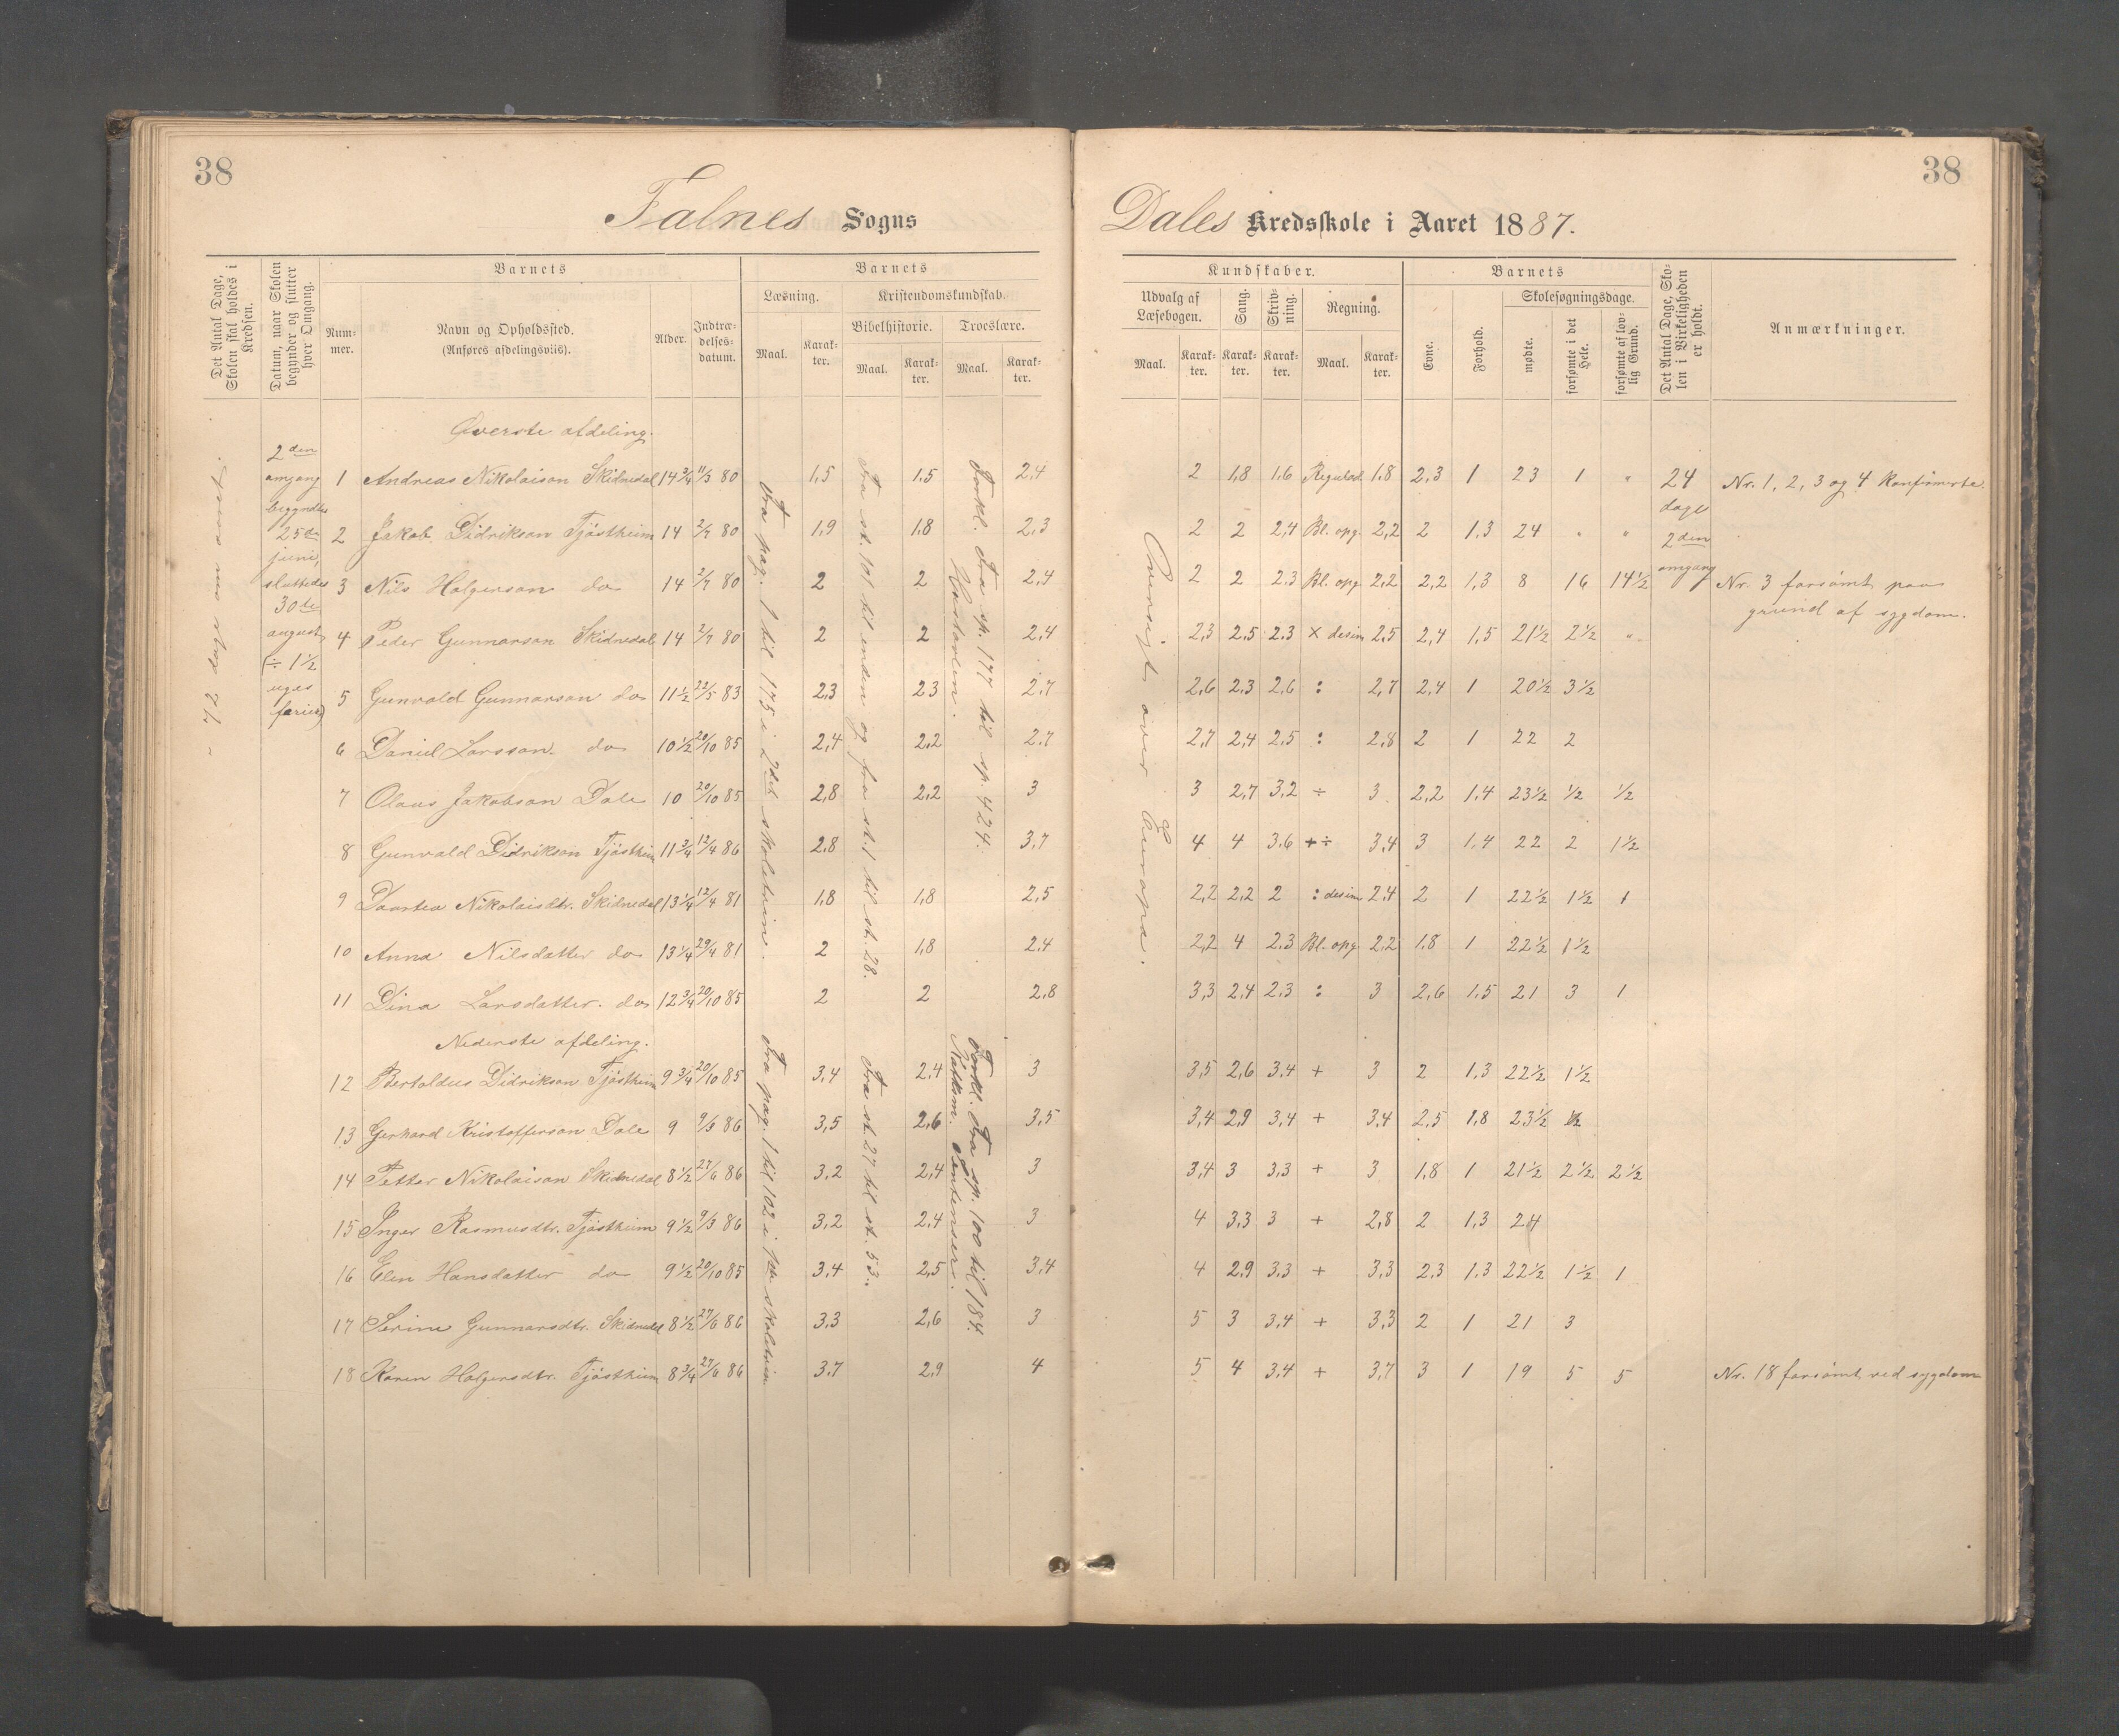 38
Falnes Sogns
Det Antal Dage, Skolen skal holdes i Kredsen.
Datum, naar Skolen begynder og slutter hver Omgang.
Barnets
Num-mer.
Navn og Opholdssted.
(Anføres afdelingsviis).
Alder.
Indtræ-delses-datum.
Barnets
Læsning.
Maal.
Karak-ter.
Kristendomskundskab.
Bibelhistorie.
Maal.
Karak-ter.
Troeslære.
Maal.
Karak-ter.
2den
omgang
begyndtes
25de
juni,
sluttedes
30te
august
(÷ 1½
uges
ferie)
Øverste afdeling.
1 Andreas Nikolaison Skidnedal 14¾ 11/3 80 1,5 1,5 2,4
2 Jakob Didrikson Tjöstheim 14 2/7 80 1,9 1,8 2,3
3 Nils Holgerson do 14 2/7 80 2 2 2,4
4 Peder Gunnarson Skidnedal 14 2/7 80 2 2 2,4
5 Gunvald Gunnarson do 11½ 22/5 83 2,3 2,3 2,7
6 Daniel Larsson do 10½ 20/10 85 2,4 2,2 2,7
7 Olaus Jakobson Dale 10 20/10 85 2,8 2,2 3
8 Gunvald Didrikson Tjöstheim 11¾ 12/4 86 2,8 3,7
9 Daartea Nikolaisdtr. Skidnedal 13¼ 12/4 81 1,8 1,8 2,5
10 Anna Nilsdatter do 13¼ 29/4 81 2 1,8 2,4
11 Dina Larsdatter. do 12¾ 20/10 85 2 2 2,8
Fra pag. 1 til 175 i 2det skoletrin.
Fra st. 101 til enden og fra st. 1 til st. 28.
Forkl. Fra sp. 177 til sp. 424.
Hustavlen.
Nederste afdeling.
12 Bertoldus Didrikson Tjöstheim 9¾ 20/10 85 3,4 2,4 3
13 Gerhard Kristofferson Dale 9 9/3 86 3,5 2,6 3,5
14 Petter Nikolaison Skidnedal 8½ 27/6 86 3,2 2,4 3
15 Inger Rasmusdtr. Tjöstheim 9½ 9/3 86 3,2 2,4 3
16 Elen Hansdatter do 9½ 20/10 85 3,4 2,5 3,4
17 Serine Gunnarsdtr. Skidnedal 8½ 27/6 86 3,3 2,6 3
18 Karen Holgersdtr. Tjöstheim 8¾ 27/6 86 3,7 2,9 4
Fra pag. 1 til 102 i 1ste skoletrin
Fra st. 27 til st. 53.
Forkl. Fra sp. 100 til 184.
sentenser.
38
Dales Kredsskole i Aaret 1887.
Kundskaber.
Udvalg af Læsebogen.
Maal.
Karak-ter.
Sang.
Karak-ter.
Skriv-ning.
Karak-ter.
Regning.
Maal.
Karak-ter.
Barnets
Evne.
Forhold.
Skolesøgningsdage.
mødte.
forsømte i det Hele.
forsømte af lov-lig Grund.
Det Antal Dage, Sko-len i Virkeligheden er holdt.
Anmærkninger.
Oversigt over Europa.
2 1,8 1,6 Reguled. 1,8 2,3 1 23 1 " 24 Nr. 1, 2, 3 og 4 konfirmerte.
dage
2 2 2,4 Bl. opg. 2,2 2 1,3 24 " " 2den
omgang
2 2 2,3 Bl. opg. 2,2 2,2 1,3 8 16 14½ Nr. 3 forsömt paa
grund af sygdom.
2,3 2,5 2,3 × desim 2,5 2,4 1,5 21½ 2½ "
2,6 2,3 2,6 : 2,7 2,4 1 20½ 3½
2,7 2,4 2,5 : 2,8 2 1 22 2
3 2,7 3,2 ÷ 3 2,2 1,4 23½ ½ ½
4 4 3,6 +÷ 3,4 3 1,4 22 2 1½
2,2 2,2 2 : desim 2,4 2 1 22½ 1½ 1
2,2 4 2,3 Bl. opg. 2,2 1,8 1 22½ 1½
3,3 2,4 2,3 : 3 2,6 1,5 21 3 1
3,5 2,6 3,4 + 3 2 1,3 22½ 1½
3,4 2,9 3,4 + 3,4 2,5 1,8 23½ ½
3,4 3 3,3 + 3 1,8 1 21½ 2½ 2½
4 3,3 3 + 2,8 2 1,3 24
4 2,9 3,3 + 3,3 2,3 1,3 22½ 1½ 1
5 3 3,4 + 3,3 2 1 21 3
5 4 3,4 + 3,7 3 1 19 5 5 Nr. 18 forsömt ved sygdom